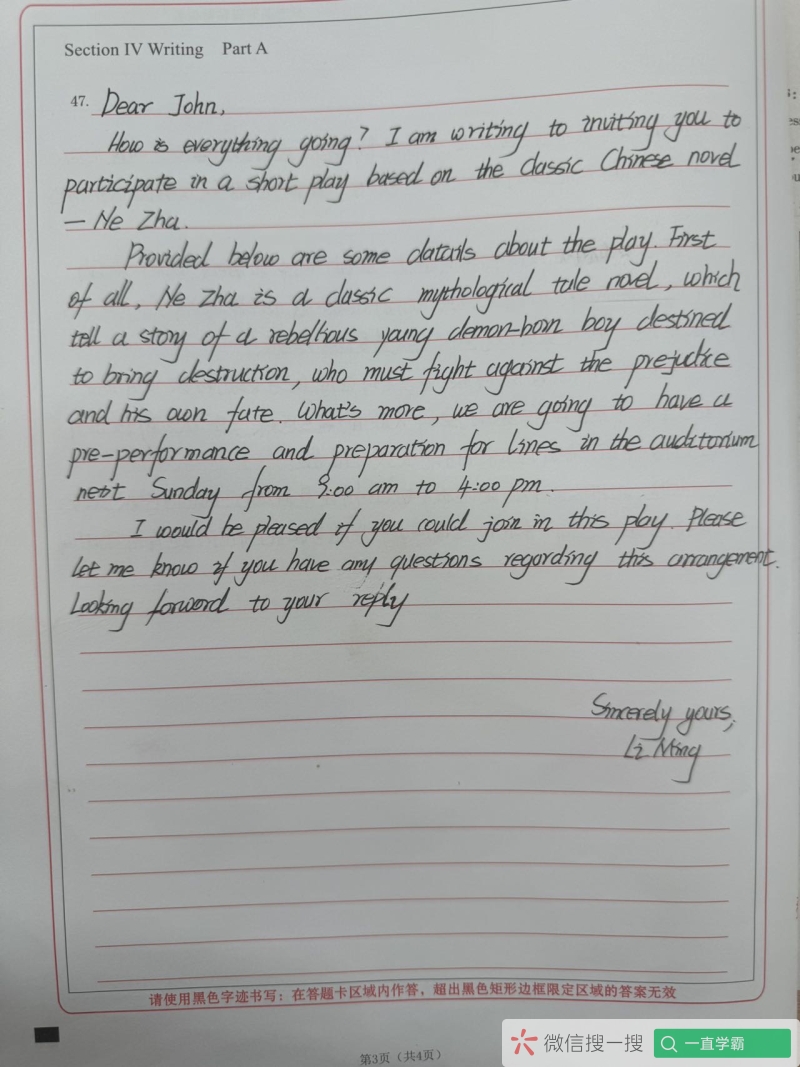 Section IV Writing Part A
47. Dear John,
How is everything going? I am writing to inviting you to
participate in a short play based on the classic Chinese novel
— Ne Zha.
Provided below are some datails about the play. First
of all, Ne Zha is a classic mythological tale novel, which
tell a story of a rebellious young demon-born boy destined
to bring destruction, who must fight against the prejudice
and his own fate. What's more, we are going to have a
pre-performance and preparation for lines in the auditorium
next Sunday from 9:00 am to 4:00 pm.
I would be pleased if you could join in this play. Please
let me know if you have any questions regarding this arrangement.
Looking forward to your reply
Sincerely yours,
Li Ming
请使用黑色字迹书写：在答题卡区域内作答，超出黑色矩形边框限定区域的答案无效
第3页（共4页）
微信搜一搜
一直学霸